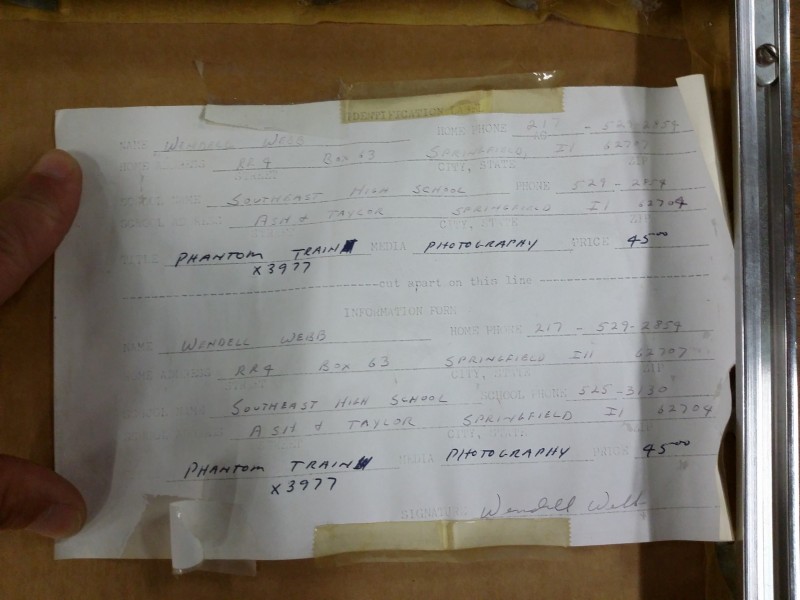 IDENTIFICATION
NAME WENDELL WEBB HOME PHONE 217 - 529-2854
HOME ADDRESS RR4 Box 63 SPRINGFIELD, Il 62707
STREET CITY, STATE ZIP
SCHOOL NAME SOUTHEAST HIGH SCHOOL PHONE 529-2854
SCHOOL ADDRESS ASH & TAYLOR SPRINGFIELD Il 62704
CITY, STATE ZIP
TITLE PHANTOM TRAIN MEDIA PHOTOGRAPHY PRICE 45⁰⁰
X3977
cut apart on this line
INFORMATION FORM
NAME WENDELL WEBB HOME PHONE 217 - 529-2854
HOME ADDRESS RR4 Box 63 SPRINGFIELD Ill 62707
STREET CITY, STATE ZIP
SCHOOL NAME SOUTHEAST HIGH SCHOOL SCHOOL PHONE 525-3130
ASH & TAYLOR SPRINGFIELD Il 62704
CITY, STATE
PHANTOM TRAIN MEDIA PHOTOGRAPHY PRICE 45⁰⁰
X3977
SIGNATURE Wendell Webb